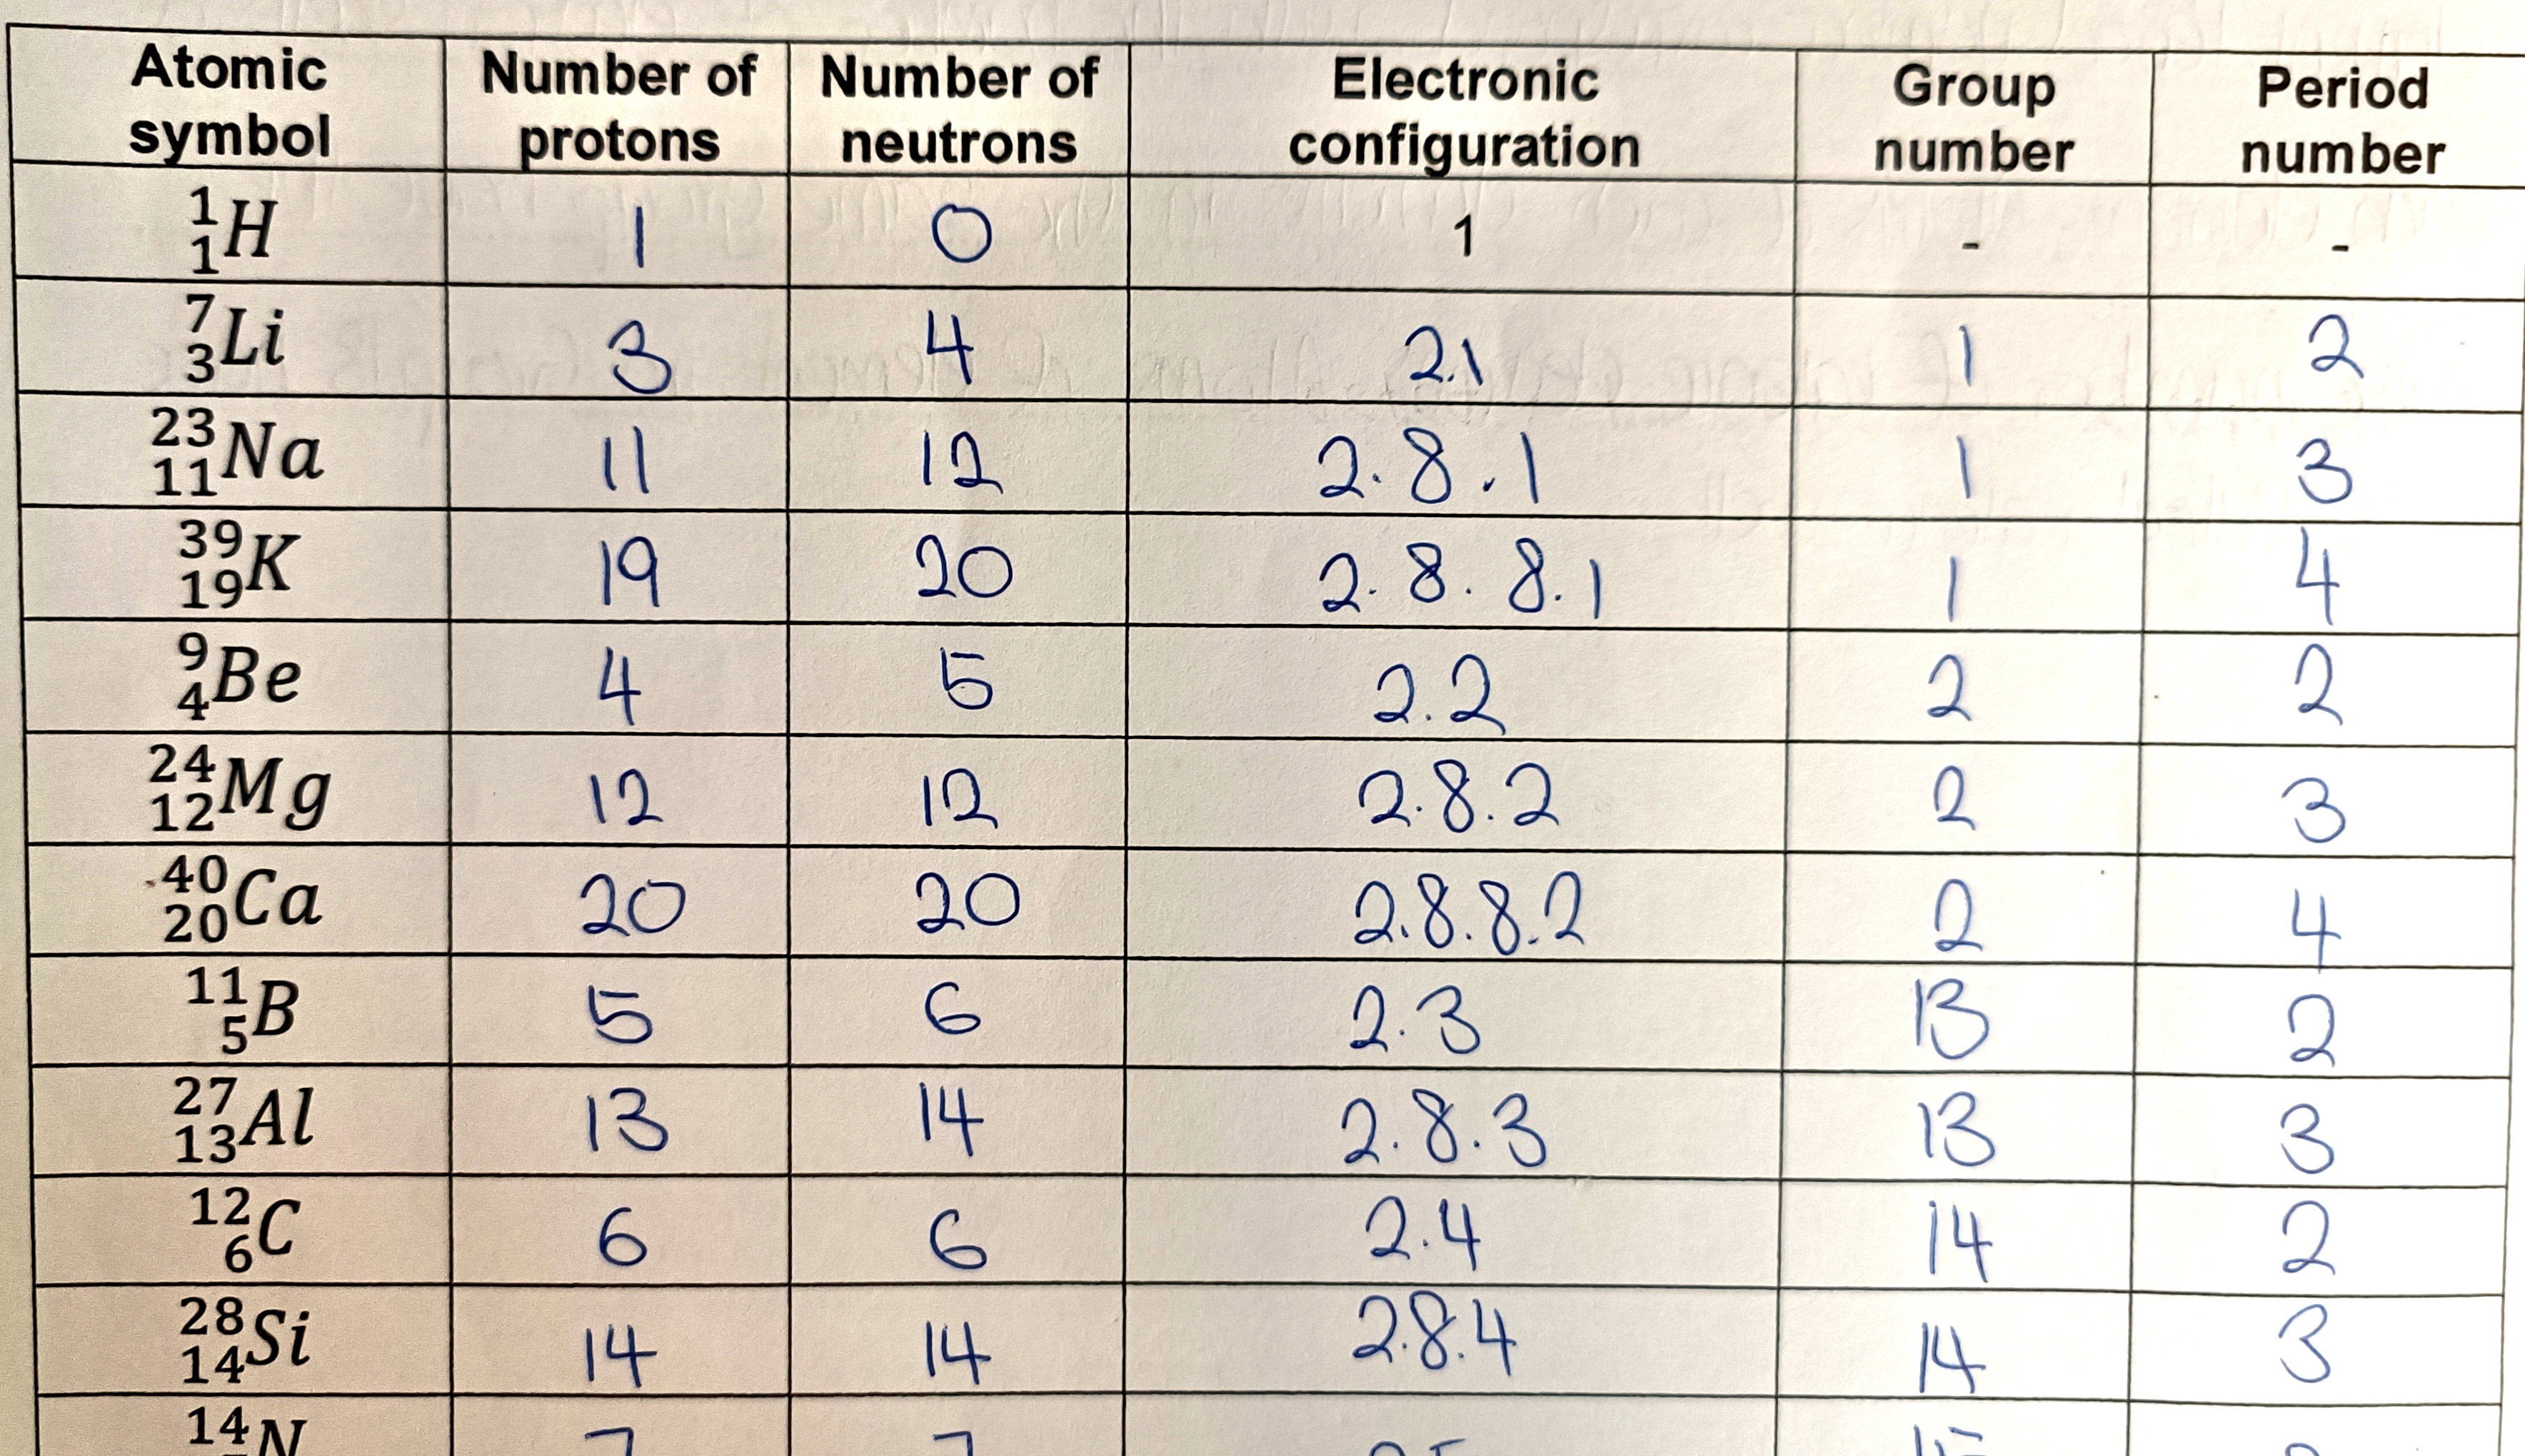 Atomic symbol Number of protons Number of neutrons Electronic configuration Group number Period number
1 1 H 1 0 1 - -
7 3 Li 3 4 2.1 1 2
23 11 Na 11 12 2.8.1 1 3
39 19 K 19 20 2.8.8.1 1 4
9 4 Be 4 5 2.2 2 2
24 12 Mg 12 12 2.8.2 2 3
40 20 Ca 20 20 2.8.8.2 2 4
11 5 B 5 6 2.3 13 2
27 13 Al 13 14 2.8.3 13 3
12 6 C 6 6 2.4 14 2
28 14 Si 14 14 2.8.4 14 3
14 N 7 7